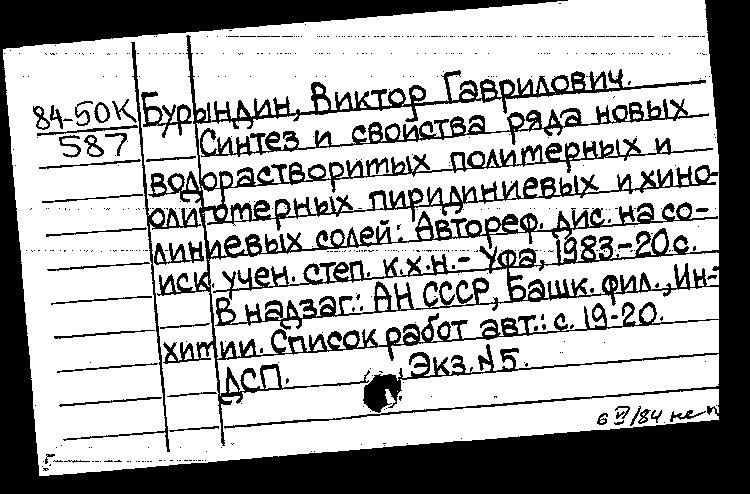 84-50К
587
Бурындин, Виктор Гаврилович.
Синтез и свойства ряда новых
водорастворимых полимерных и
олигомерных пиридиниевых и хино-
линиевых солей: Автореф. дис. на со-
иск. учен. степ. к.х.н. - Уфа, 1983.-20с.
В надзаг.: АН СССР, Башк. фил., Ин-
химии. Список работ авт.: с. 19-20.
ДСП. Экз. N 5.
6 VI/84 не